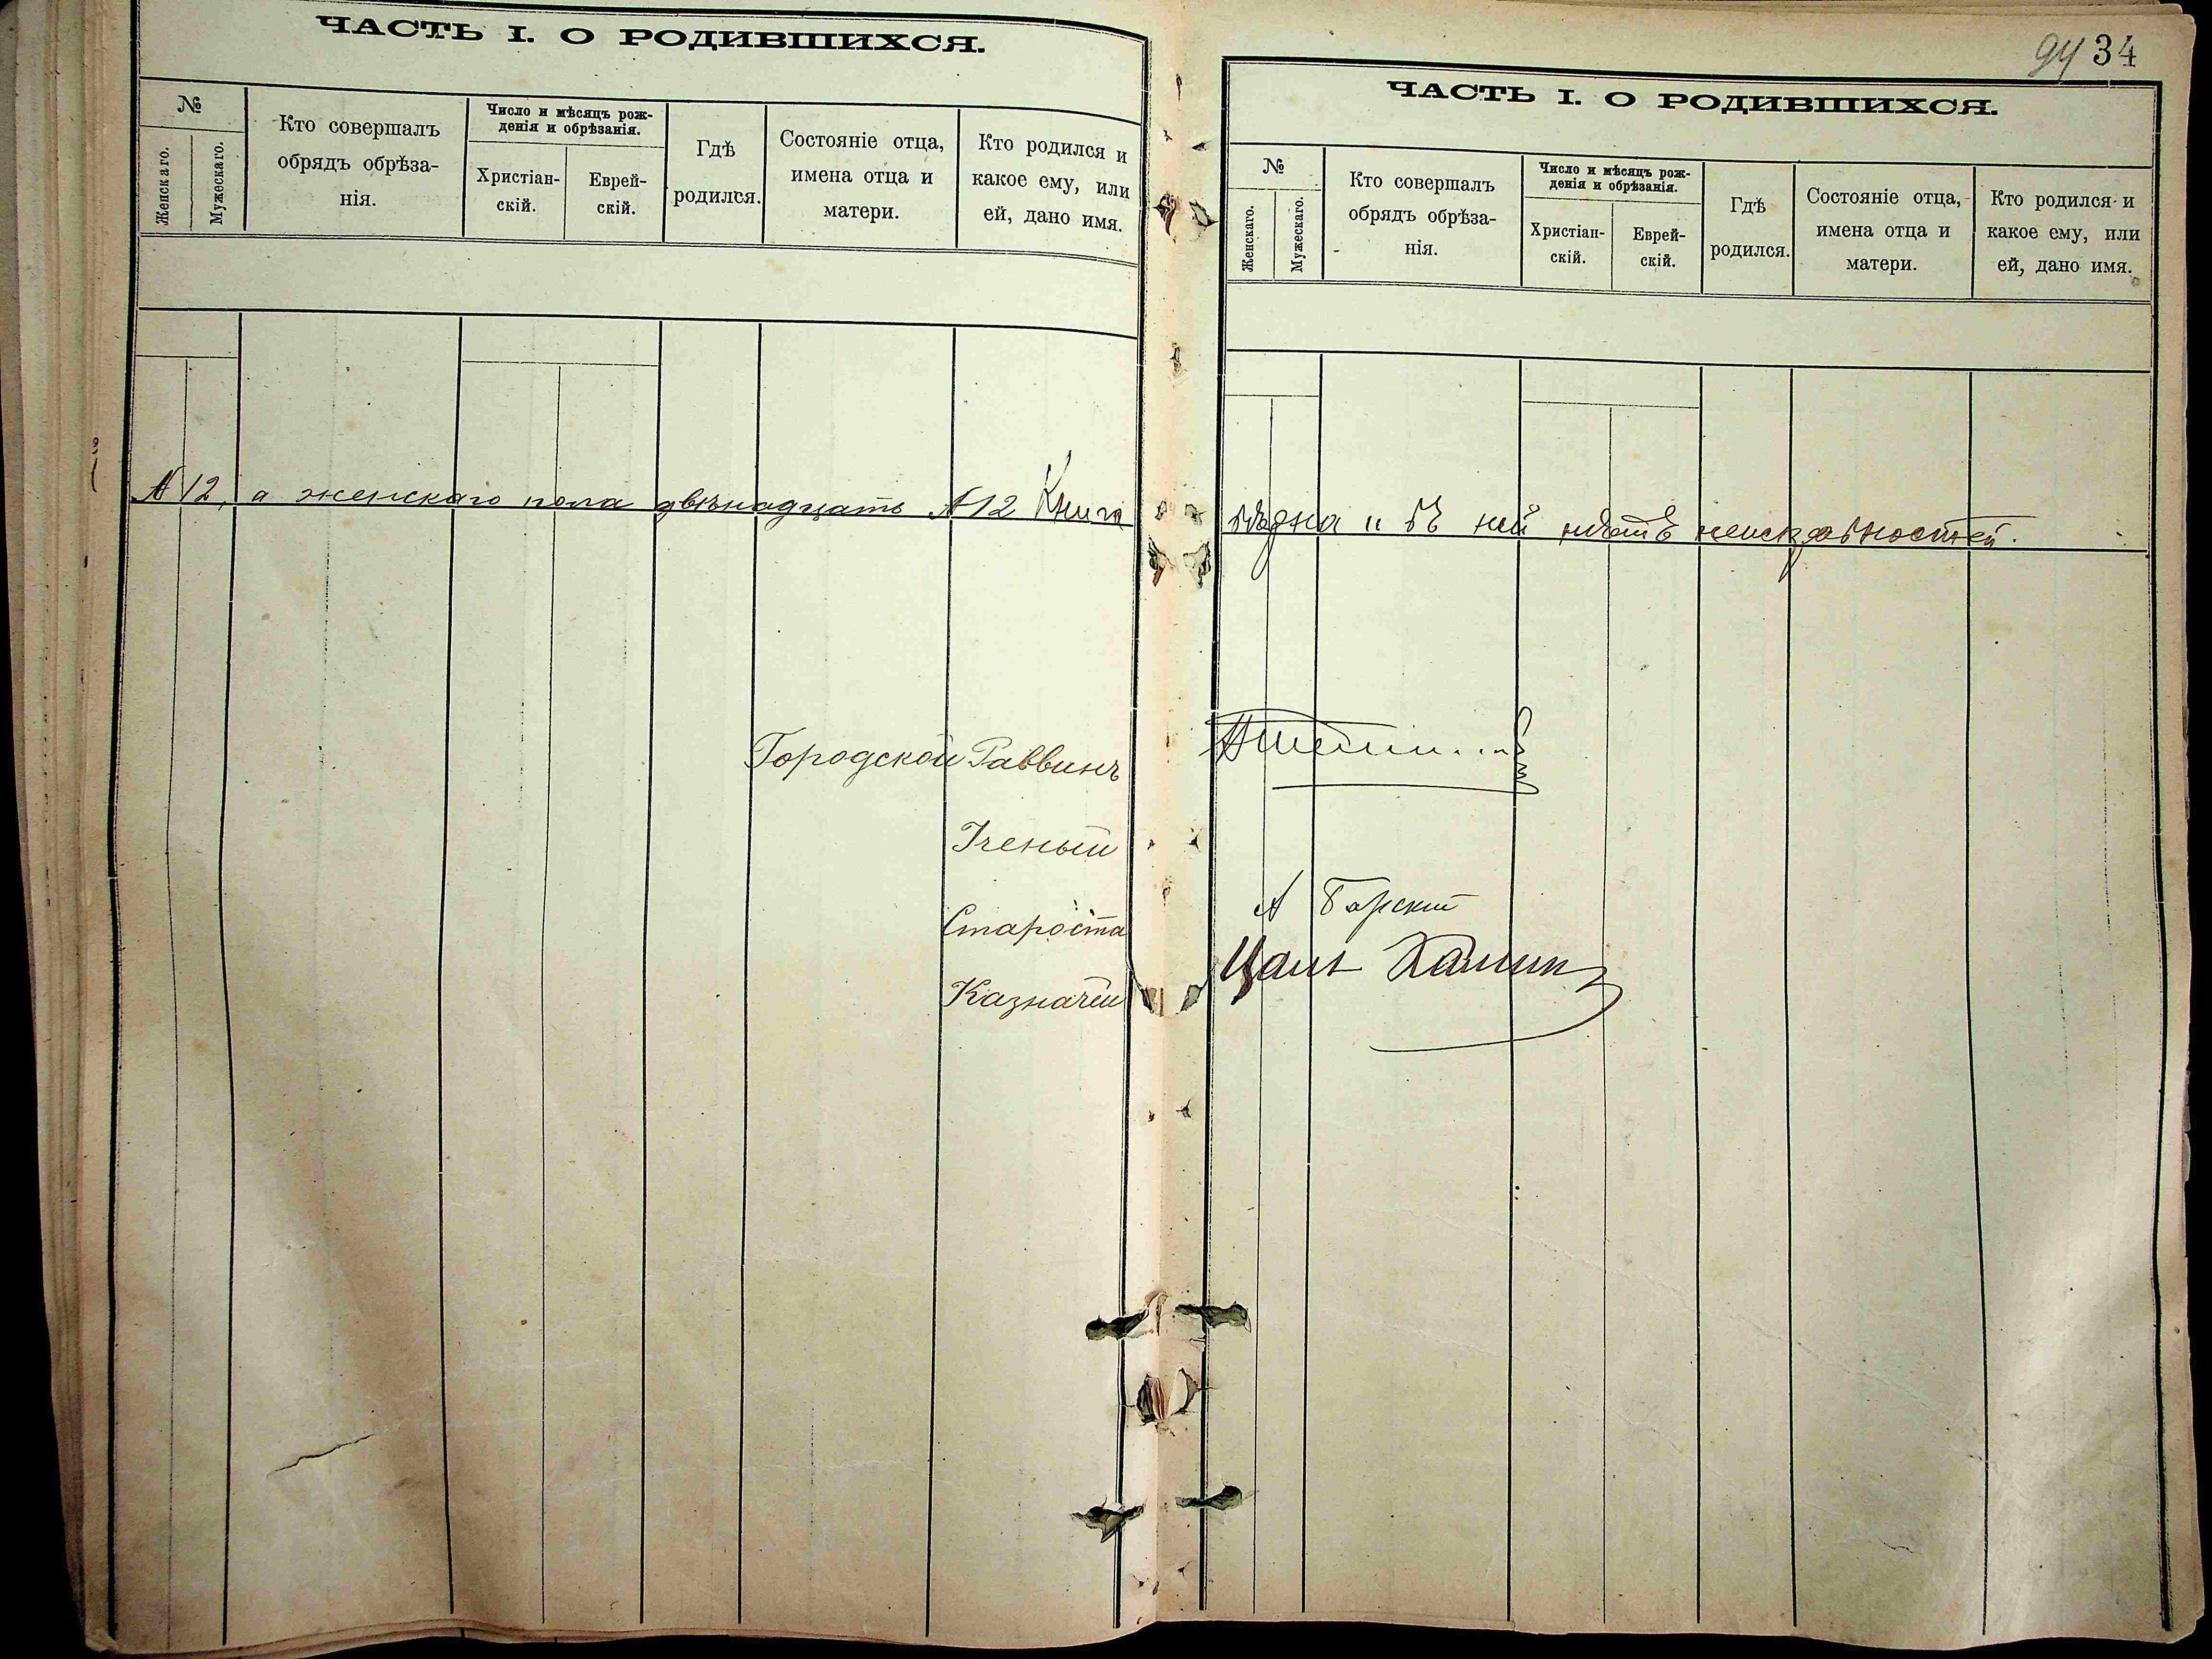 ЧАСТЬ I. О РОДИВШИХСЯ.
№
Женскаго.
Мужескаго.
Кто совершалъ
обрядъ обрѣза-
нія.
Число и мѣсяцъ рож-
денія и обрѣзанія.
Христіан-
скій.
Еврей-
скій.
Гдѣ
родился.
Состояніе отца,
имена отца и
матери.
Кто родился и
какое ему, или
ей, дано имя.
№ 12, а женскаго пола двѣнадцать № 12 Книга
Городской Раввинъ
Ученый
Староста
Казначей
94 34
ЧАСТЬ I. О РОДИВШИХСЯ.
№
Женскаго.
Мужескаго.
Кто совершалъ
обрядъ обрѣза-
нія.
Число и мѣсяцъ рож-
денія и обрѣзанія.
Христіан-
скій.
Еврей-
скій.
Гдѣ
родился.
Состояніе отца,
имена отца и
матери.
Кто родился и
какое ему, или
ей, дано имя.
вѣрна и въ ней нѣтъ неисправностей.
А Борскій